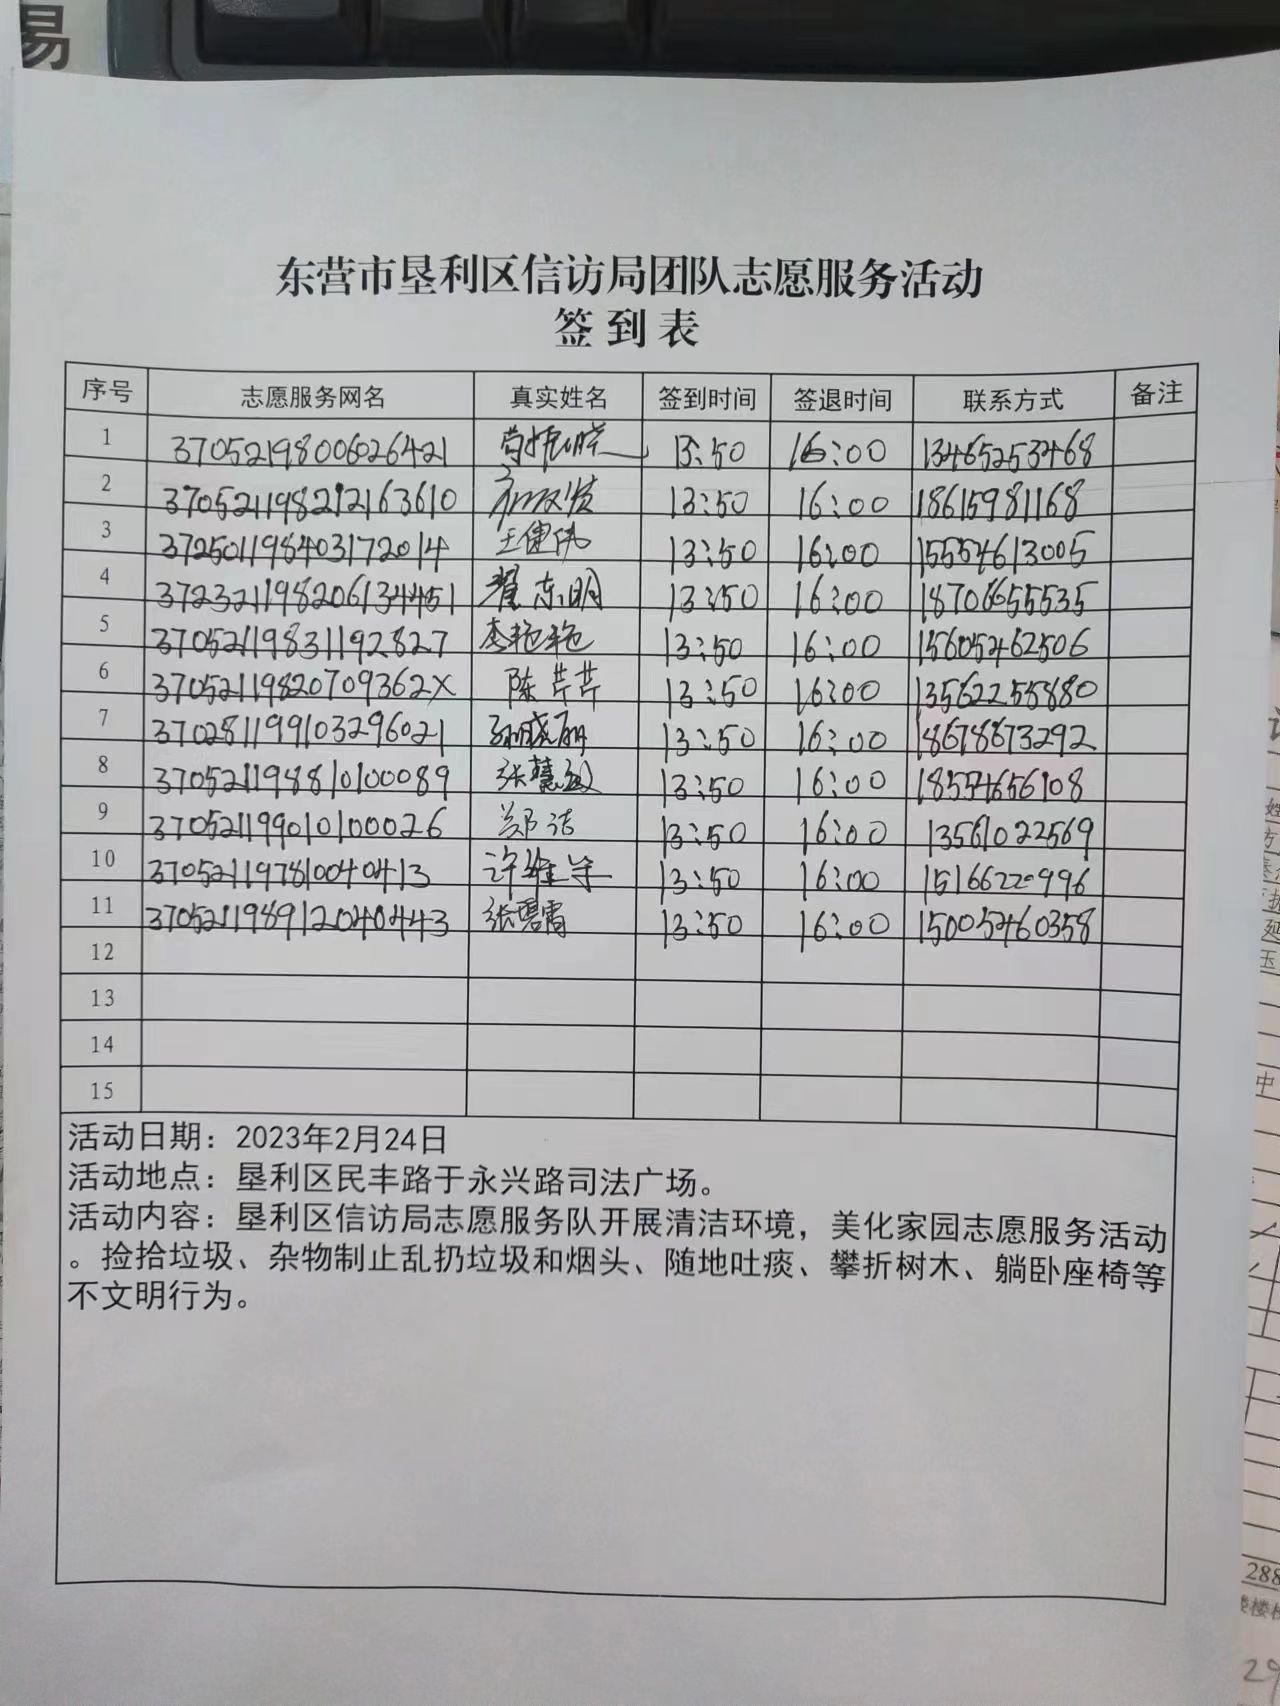 易
东营市垦利区信访局团队志愿服务活动
签到表
序号 志愿服务网名 真实姓名 签到时间 签退时间 联系方式 备注
1 370521198006026421 13:50 16:00 13465253468
2 13:50 16:00 18615981168
3 372501198403172014 王健伟 13:50 16:00 15554613005
4 372321198206134451 翟东明 13:50 16:00 18706655535
5 370521198311192827 李艳艳 13:50 16:00 15605462506
6 37052119820709362X 陈芹芹 13:50 16:00 13562255880
7 370281199103296021 13:50 16:00 18678673292
8 370521198810100089 张慧敏 13:50 16:00 18554656108
9 370521199010100026 郑洁 13:50 16:00 13561022569
10 370521197810040413 13:50 16:00 15166220996
11 370521198912040443 张碧霄 13:50 16:00 15005460358
12
13
14
15
活动日期：2023年2月24日
活动地点：垦利区民丰路于永兴路司法广场。
活动内容：垦利区信访局志愿服务队开展清洁环境，美化家园志愿服务活动
。捡拾垃圾、杂物制止乱扔垃圾和烟头、随地吐痰、攀折树木、躺卧座椅等
不文明行为。
中
288
29